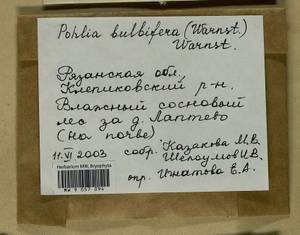 Pohlia bulbifera (Warnst.)
Warnst.
Рязанская обл.
Клепиковский р-н.
Влажный сосновый
лес за д. Лаптево
(на почве)
11.VI 2003 собр. Казакова М.В.
Шелаумов И.В.
Herbarium MW, Bryophyta
MW 9 057 094
опр. Игнатова Е.А.